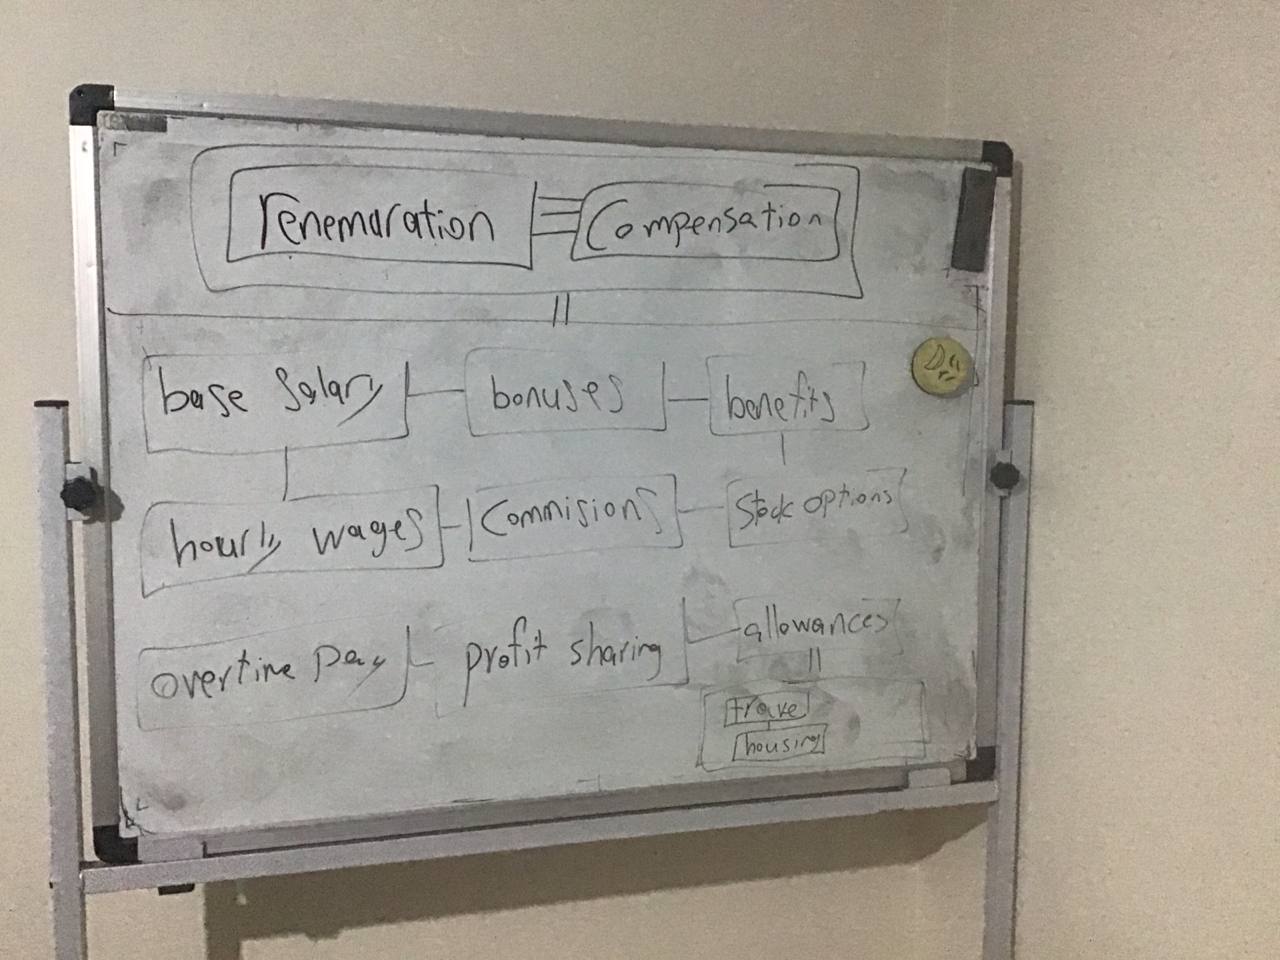 renemuration Compensation
base salary bonuses benefits
hourly wages Commisions Stock options
overtime pay profit sharing allowances
trave
housing